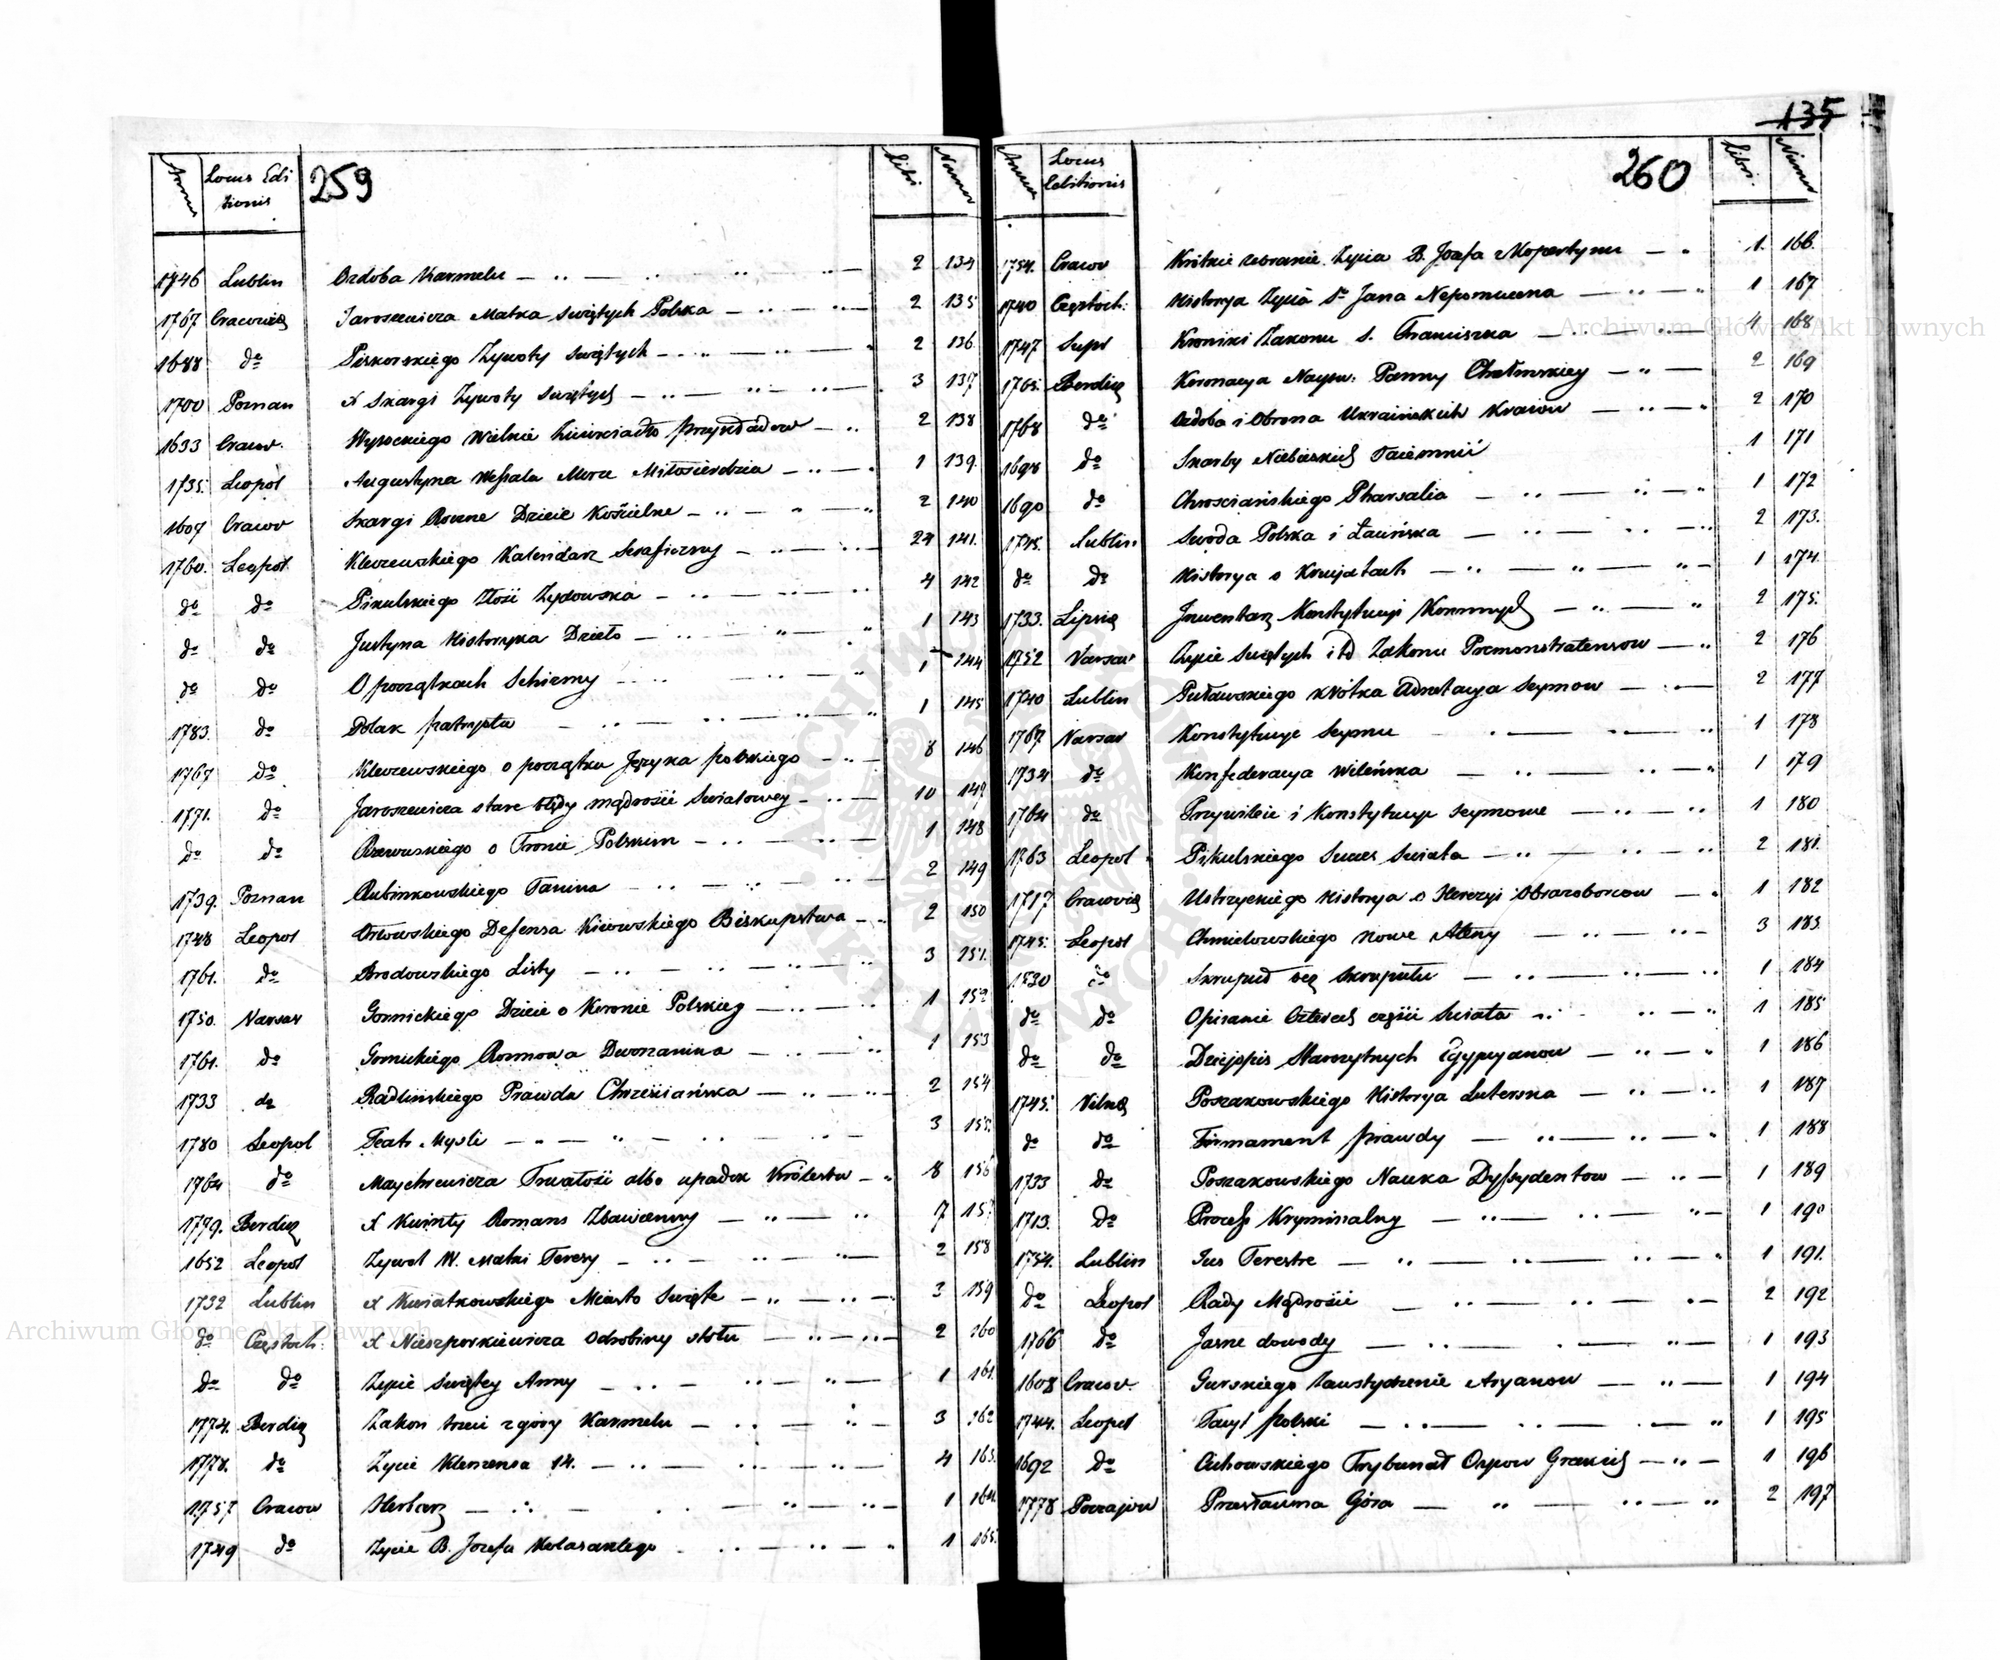 135
Annus Locus Editionis 259 Libri. Numer
1746 Lublin Ozdoba Karmelu 2 134
1767 Cracovię Jaroszewicza Matka Swiętych Polska 2 135
1688 do Piskorskiego Zywoty Swiętych 2 136
1700 Poznan X Skargi Zywoty Swiętych 3 137
1633 Cracov. Wysockiego Wielkie Zwierciadło przykładow 2 138
1735. Leopol Augustyna Morze Miłosierdzia 1 139.
1607 Cracov Skargi Roczne Dzieie Kościelne 2 140
1760. Leopol. Kleczewskiego Kalendarz Seraficzny 24 141.
do do Pikulskiego Złość Zydowska 4 142
do do Justyna Historyka Dzieło 1 143
do do O początkach Schizmy 1 144
1783. do Polak patryota 1 145
1767 do Kleczewskiego o początku Języka polskiego 8 146
1771. do Jaroszewicza stare błędy mądrości Swiatowey 10 147
do do Rzewuskiego o Tronie Polskim 1 148
1739. Poznan Rubinkowskiego Janina 2 149
1748 Leopol Orłowskiego Defensa Kiiowskiego Biskupstwa 2 150
1761. do Brodowskiego Listy 3 151.
1750. Varsav Gornickiego Dzieie o Koronie Polskiey 1 152
1761. do Gornickiego Rozmowa Dworzanina 1 153
1733 do Radlinskiego Prawda Chrzesciańska 2 154
1780 Leopol Teatr Mysli 3 155.
1764 do Maychrewicza Trwałość albo upadek Królestw 8 156
1779. Berdic X Kwinty Romans Zbawienny 7 157
1652 Leopol Zywot W. Matki Teresy 2 158
1732 Lublin X Kwiatkowskiego Miasto Swięte 3 159
do Częstoch. X Nieszporkiewicza Odrobiny stołu 2 160
do do Zycie Swiętey Anny 1 161.
1774. Berdic Zakon trzeci z góry Karmelu 3 162
1778. do Zycie Klemensa 14. 4 163.
1757 Cracov Herbarz 1 164.
1749 do Zycie B. Jozefa Kalasantego 1 165.
Annus Locus Editionis 260 Libri. Numer
1754. Cracov Krótkie zebranie Zycia B. Jozefa Kopertynu 1. 166.
1740 Częstoch. Historya Zycia Sgo Jana Nepomucena 1 167
1747 Supr Kroniki Zakonu S. Franciszka 4 168
1765. Berdic Koronacya Nayśw: Panny Chełmskiey 2 169
1768 do Ozdoba i Obrona Ukraińskich Kraiow 2 170
1698 do Skarby Niebieskich Taiemnic 1 171
1690 do Chrościańskiego Pharsalia 1 172
1745. Lublin Swoda Polska i Łacińska 2 173.
do do Historya o Krucyatach 1 174.
1733. Lipsię Inwentarz Konstytucyi Koronnych 2 175.
1752 Varsav Zycie Swiętych i Bł Zakonu Premonstratensow 2 176
1740 Lublin Puławskiego krótka Adnotacya Seymow 2 177
1767 Varsav Konstytucye Seymu 1 178
1734 do Konfederacya Wileńska 1 179
1764 do Przywileie i Konstytucye seymowe 1 180
1763 Leopol Pikulskiego Sukces Swiata 2 181.
1717 Cracovię Ustrzyckiego Historya o Herezyi Obrazoborcow 1 182
1745. Leopol Chmielowskiego Nowe Ateny 3 183.
1730 do Skrupuł bez Skrupułu 1 184
do do Opisanie Czterech części Swiata 1 185
do do Dzieiopis Starożytnych Egypcyanow 1 186
1745. Vilnę Poszakowskiego Historya Luterska 1 187
do do Firmament prawdy 1 188
1733 do Poszakowskiego Nauka Dyssydentow 1 189
1713. do Proces Kryminalny 1 190
1754. Lublin Ius Terestre 1 191.
do Leopol Rady Mądrości 2 192
1766 do Jasne dowody 1 193
1608 Cracov. Gurskiego Zawstydzenie Aryanow 1 194
1744. Leopol Tacyt polski 1 195
1692 do Cichowskiego Trybunał Oycow Greckich 1 196
1778 Poczajow Przesławna Góra 2 197
Archiwum Główne Akt Dawnych
Archiwum Główne Akt Dawnych